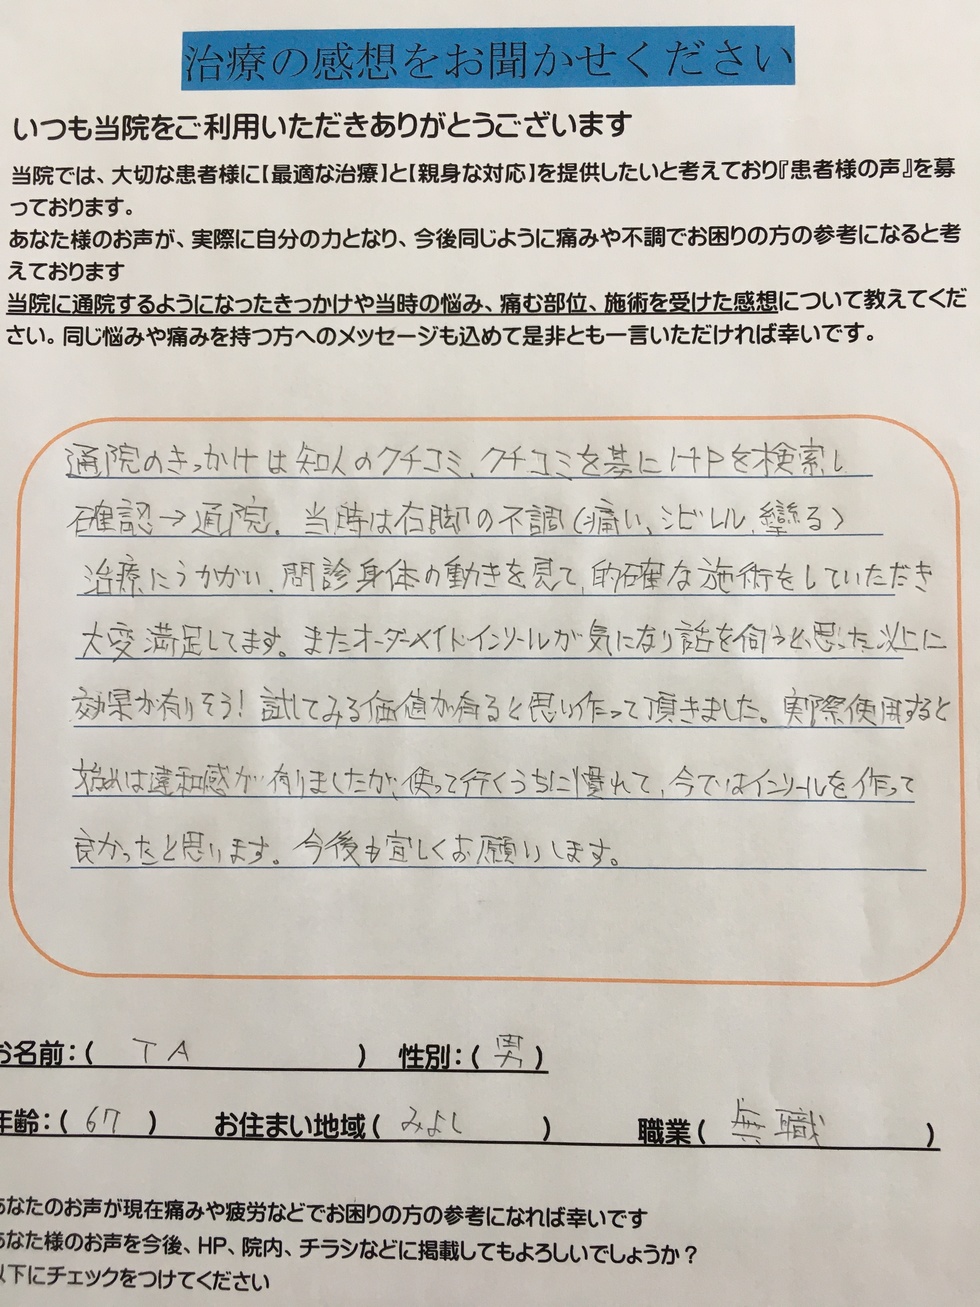 治療の感想をお聞かせください
いつも当院をご利用いただきありがとうございます
当院では、大切な患者様に【最適な治療】と【親身な対応】を提供したいと考えており『患者様の声』を募
っております。
あなた様のお声が、実際に自分の力となり、今後同じように痛みや不調でお困りの方の参考になると考
えております
当院に通院するようになったきっかけや当時の悩み、痛む部位、施術を受けた感想について教えてくだ
さい。同じ悩みや痛みを持つ方へのメッセージも込めて是非とも一言いただければ幸いです。
通院のきっかけは知人のクチコミ、クチコミを基にHPを検索し
確認→通院。当時は右脚の不調(痛い、シビレル、攣る)
治療にうかがい、問診身体の動きを見て、的確な施術をしていただき
大変満足してます。またオーダーメイドインソールが気になり話を伺うと、思った以上に
効果が有りそう!試してみる価値が有ると思い作って頂きました。実際使用すると
始めは違和感が有りましたが、使って行くうちに慣れて、今ではインソールを作って
良かったと思います。今後も宜しくお願いします。
お名前:( TA ) 性別:(男)
年齢:( 67 ) お住まい地域( みよし ) 職業( 無職 )
あなたのお声が現在痛みや疲労などでお困りの方の参考になれば幸いです
あなた様のお声を今後、HP、院内、チラシなどに掲載してもよろしいでしょうか?
以下にチェックをつけてください